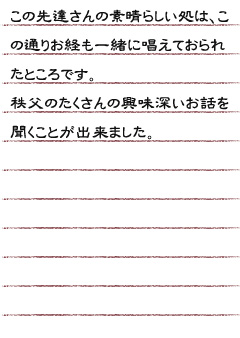 この先達さんの素晴らしい処は、こ
の通りお経も一緒に唱えておられ
たところです。
秩父のたくさんの興味深いお話を
聞くことが出来ました。